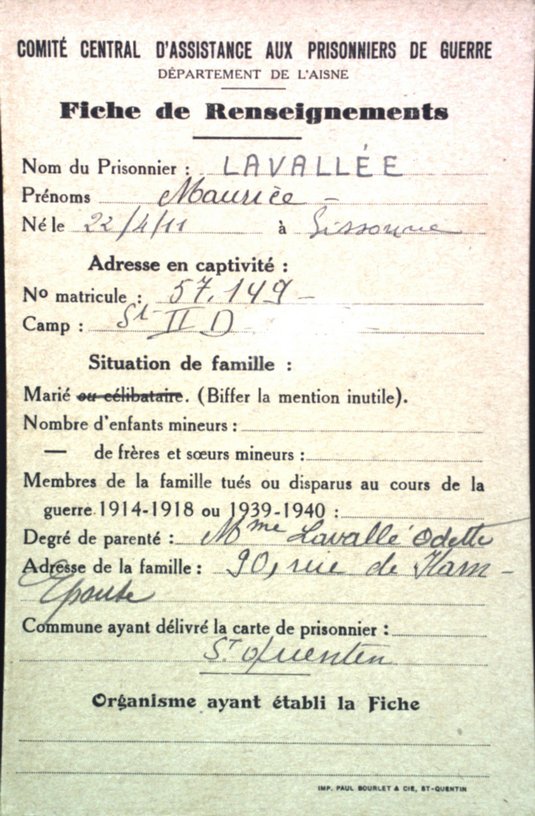 COMITÉ CENTRAL D'ASSISTANCE AUX PRISONNIERS DE GUERRE
DÉPARTEMENT DE L'AISNE
Fiche de Renseignements
Nom du Prisonnier : LAVALLÉE
Prénoms Maurice -
Né le 22/4/11 à Sissonne
Adresse en captivité :
No matricule : 57.149 -
Camp : St II D
Situation de famille :
Marié ou célibataire. (Biffer la mention inutile).
Nombre d'enfants mineurs :
— de frères et sœurs mineurs :
Membres de la famille tués ou disparus au cours de la
guerre 1914-1918 ou 1939-1940 :
Degré de parenté : Mme Lavallé Odette
Adresse de la famille : 90, rue de Ham -
Epouse
Commune ayant délivré la carte de prisonnier :
St Quentin
Organisme ayant établi la Fiche
IMP. PAUL BOURLET & CIE, ST-QUENTIN